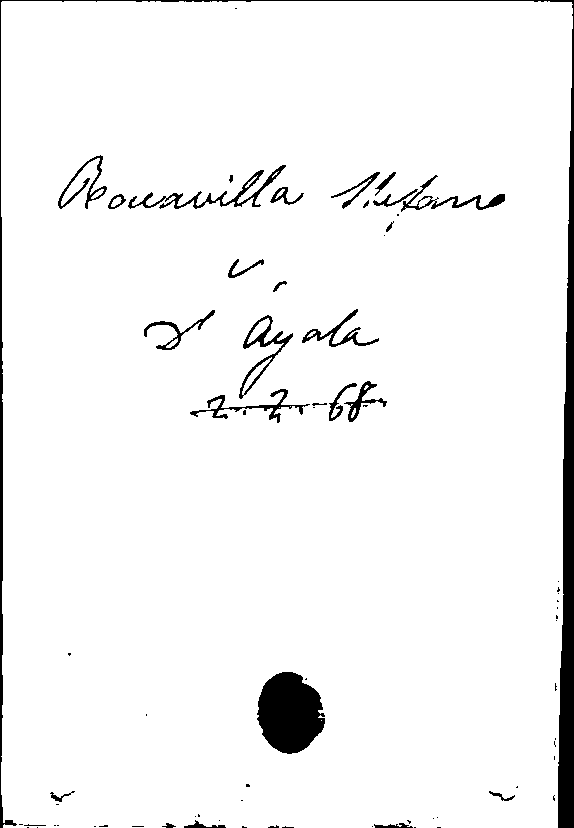 Roccavilla Stefano
v.
D' Ayala
2.2.68